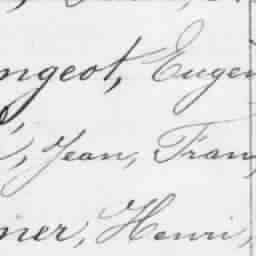 ngeot, Eugen
, Jean, Fran
ner, Henri,